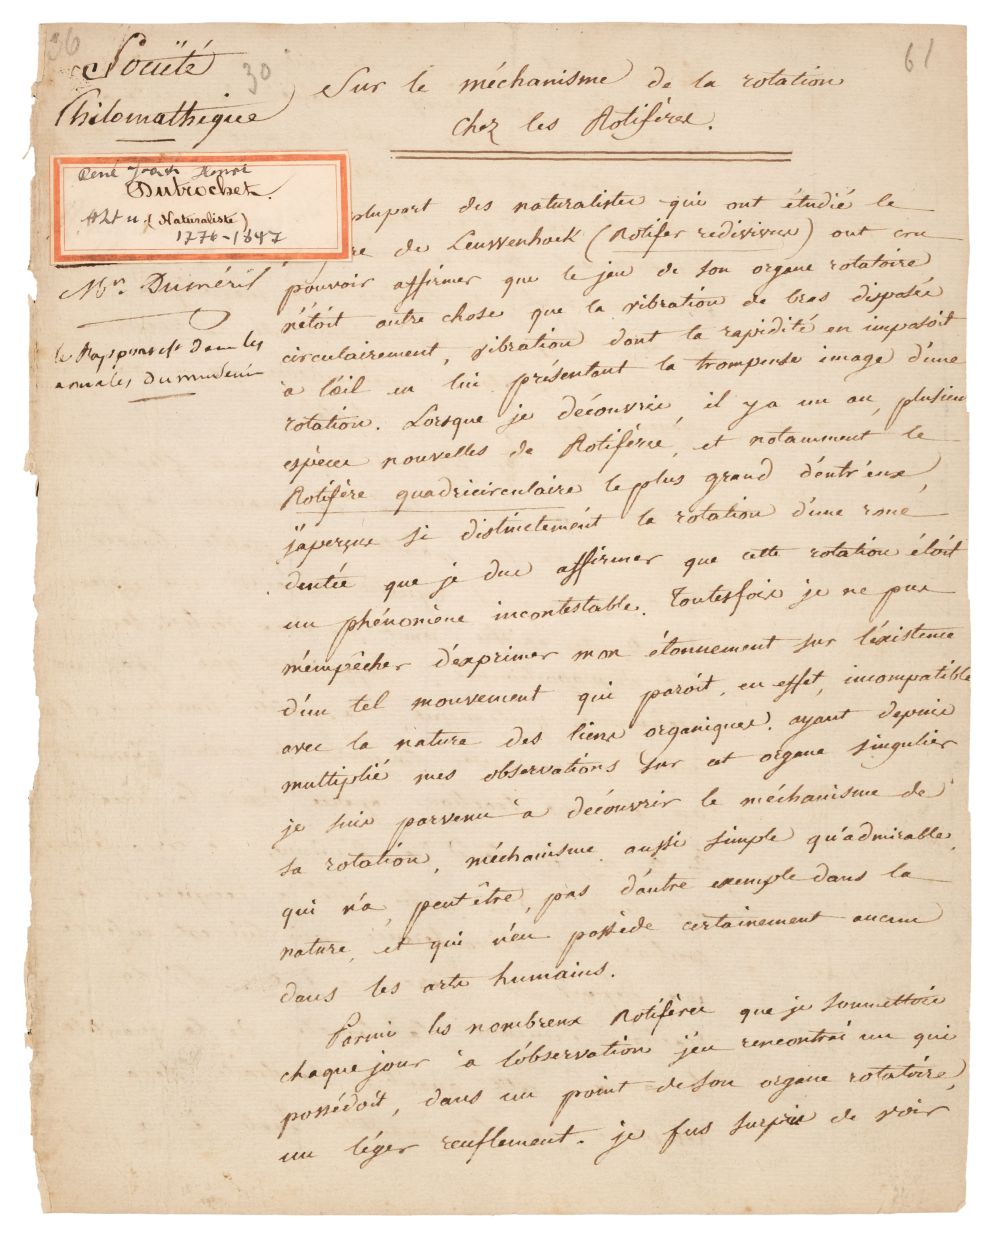 36
Société
30
Philomathique
61
Sur le méchanisme de la rotation
chez les Rotifères.
René Joach Henri
Dutrochet.
(Naturaliste)
1776-1847
Mr. Duméril
annales du museum
plupart des naturalistes qui ont étudié le
de Leuwenhoek (Rotifer redivivus) ont cru
pouvoir affirmer que le jeu de son organe rotatoire
n'étoit autre chose que la vibration de bras disposés
circulairement, vibration dont la rapidité en imposoit
à l'œil en lui présentant la trompeuse image d'une
rotation. Lorsque je découvris, il y a un an, plusieurs
espèces nouvelles de Rotifères, et notamment le
Rotifère quadricirculaire le plus grand d'entr'eux,
j'aperçus si distinctement la rotation d'une roue
dentée que je dus affirmer que cette rotation étoit
un phénomène incontestable. Toutesfois je ne pus
m'empêcher d'exprimer mon étonnement sur l'existence
d'un tel mouvement qui paroit, en effet, incompatible
avec la nature des liens organiques. ayant depuis
multiplié mes observations sur cet organe singulier
je suis parvenu à découvrir le méchanisme de
sa rotation, méchanisme aussi simple qu'admirable,
qui n'a, peut être, pas d'autre exemple dans la
nature, et qui n'en possède certainement aucun
dans les arts humains.
Parmi les nombreux Rotifères que je soumettois
chaque jour à l'observation j'en rencontrai un qui
possédoit, dans un point de son organe rotatoire,
un léger renflement. je fus surpris de voir